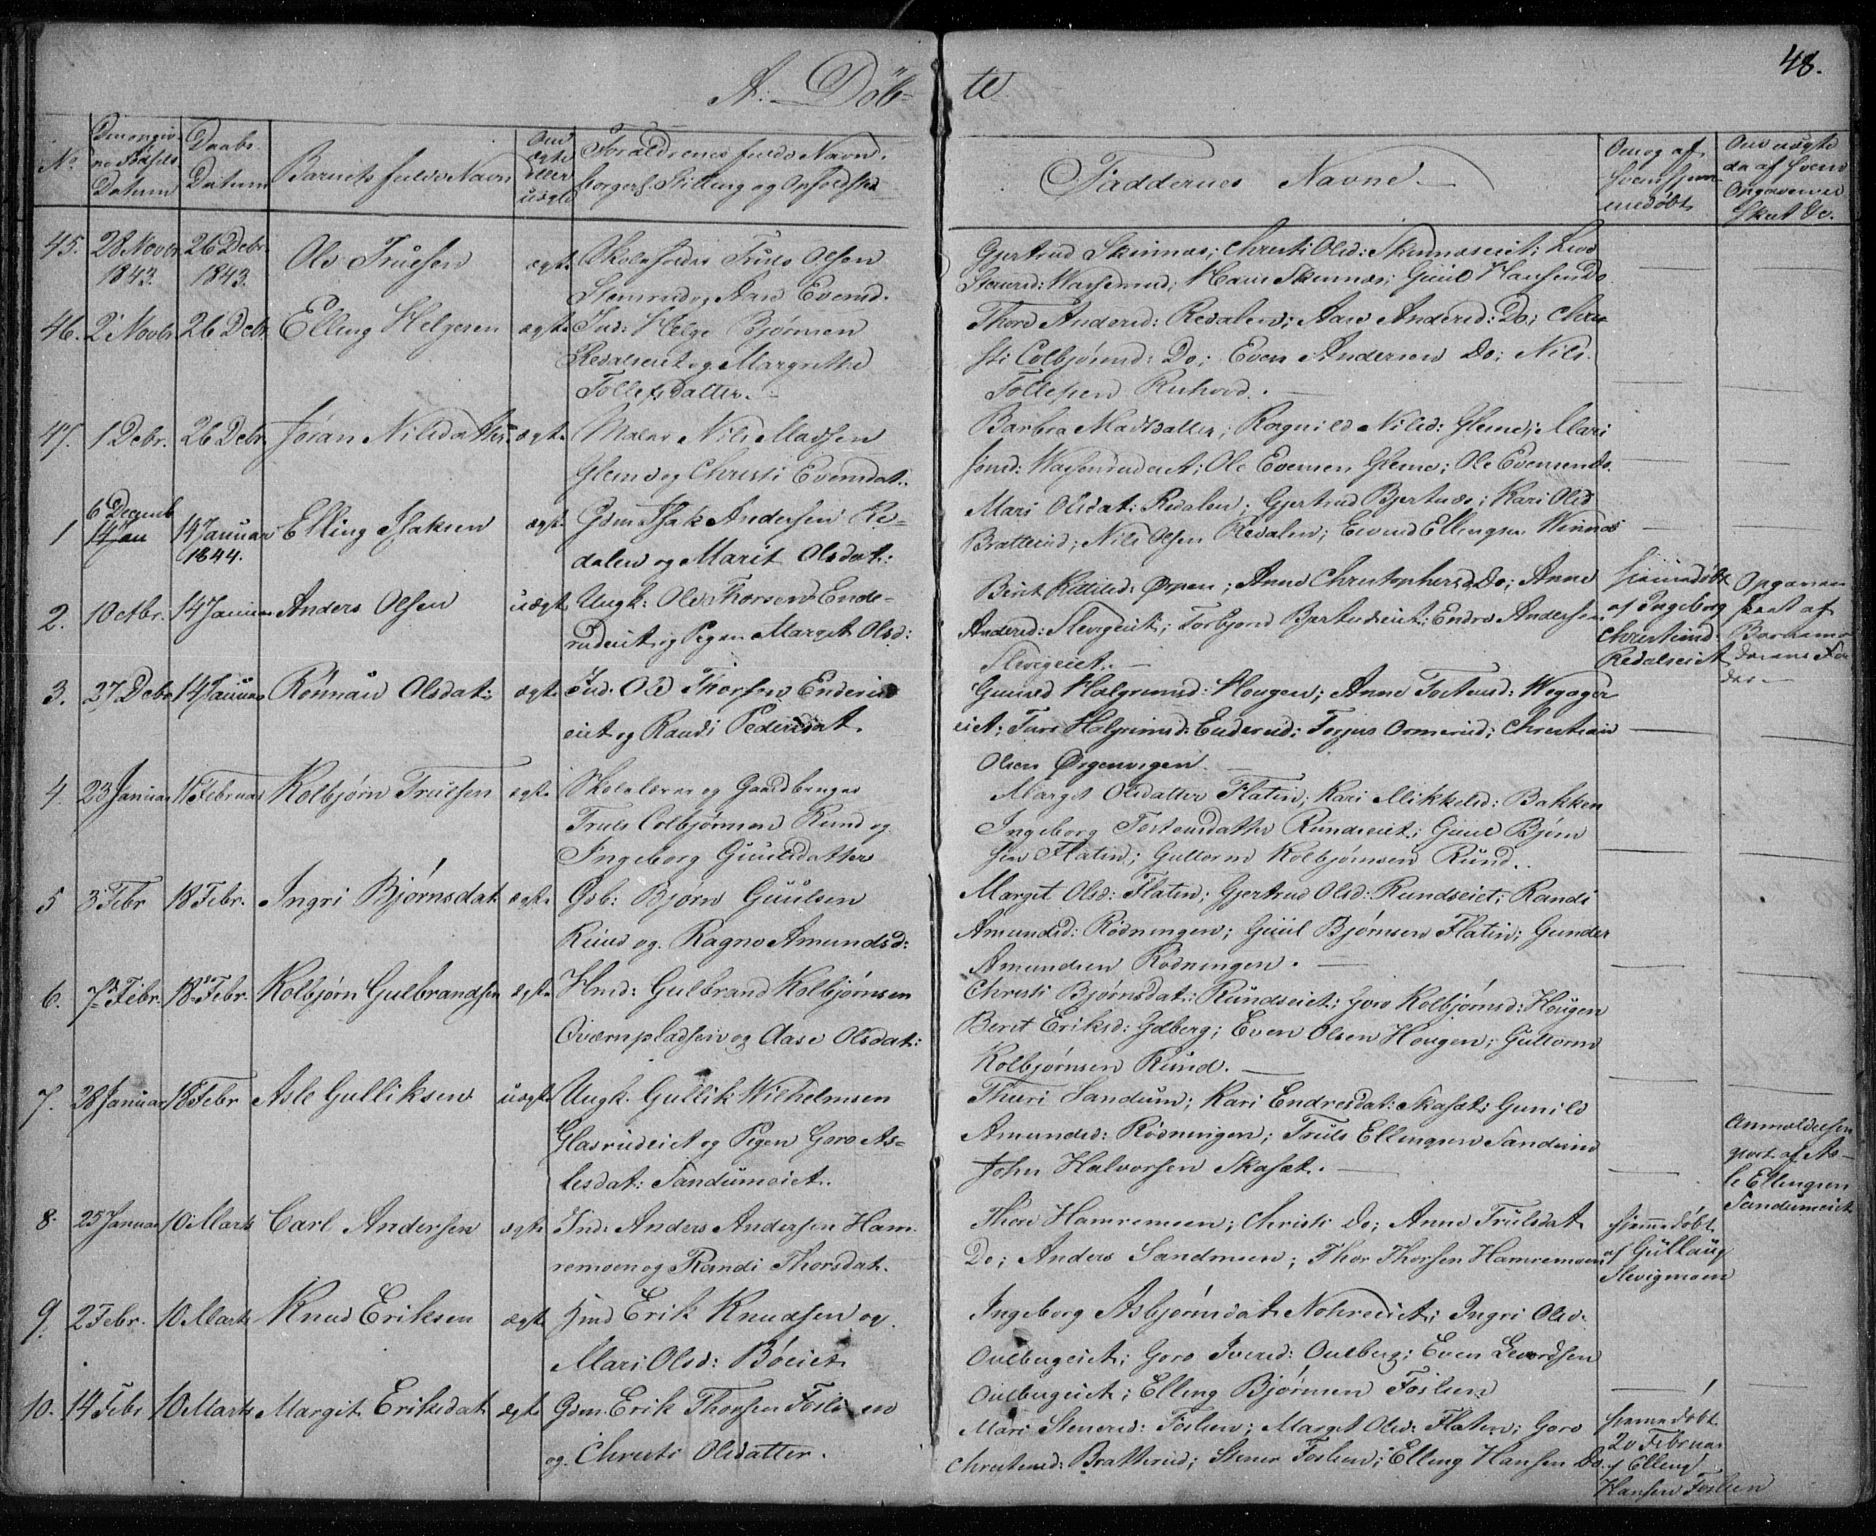 48.
A. Döb- te
No.
Daabs
Datum
Barnets fulde Navn
Om
ægte
eller
uægte
Forældrenes fulde Navne,
Faddernes Navne.
45. 28 Novbr 26 Debr. Ole Trulsen ægte Skoleholder Truls Olsen
1843. 1843.
Gjertrud Skinnes; Christi Olsd: Skinneseiet;
46. 2 Novbr 26 Debr. Elling Helgesen ægte Ind: Helge Bjørnsen
Redalseiet og Margrethe
Tollefsdatter.
Thore Andersd: Redalen; Aase Andersd: Do; Chri-
sti Colbjørnsd: Do; Even Andersen Do; Nils
Tollefsen
47. 1 Debr. 26 Debr. Jøran Nilsdatter ægte Maler Nils Madsen
Glesne og Christi Evensdat.
Barbra Madsdatter; Ragnild Nilsd: Glesne; Mari
Ole Evensen Glesne; Ole Evensen Do.
1 6 Decemb 14 Januar Elling Isaksen ægte Gdm Isak Andersen Re-
14 Jan 1844.
dalen og Marit Olsdat:
Mari Olsdat: Redalen; Gjertrud Bjertnæs; Kari Olsd
Bratterud; Nils Olsen Redalen; Eivend Ellingsen Winnæs
2. 1 Octbr. 14 Januar Anders Olsen uægte Ungk: Ole Thorsen Ende-
rudeiet og Pigen Marget Olsd:
Birit Kittilsd: Ørpen; Anne Christophersd Do; Anne
Andersd: Slevigeiet; Torbjørn Bjertnæseiet; Endre Andersen
Slevigeiet.
hjemmedøbt
af Ingeborg
Christensd.
Redalseiet
Opgaven
skeet af
Barnemo-
derens Fa-
der.
3. 27 Debr 14 Januar Rønnau Olsdat: ægte Ind. Ole Thorsen Enderud
eiet og Randi Pedersdat.
Gunild Halgrimsd: Hougen; Anne Tostensd: Wegager
eiet; Turi Halgrimsd: Enderud; Torjus Ormerud; Christian
Olsen Ørgenvigen.
4. 23 Januar 11 Februar Kolbjørn Trulsen ægte Skolelærer og Gaardbruger
Truls Colbjørnsen Rund og
Ingeborg Guulsdatter
Marget Olsdatter Flatin; Kari Mikkelsd: Bakken
Ingeborg Tostensdatter Rundseiet; Guul Bjørn
sen Flatin; Guttorm Kolbjørnsen Rund.
5 3 Febr 18 Febr. Ingri Bjørnsdat ægte Gb: Bjørn Guulsen
Ruud og Ragne Amundsd:
Marget Olsd: Flatin; Gjertrud Olsd: Rundseiet; Randi
Amundsd: Rødningen; Guul Bjørnsen Flatin; Gunder
Amundsen Rødningen.
6. 7 Febr. 18 Febr. Kolbjørn Gulbrandsen ægte Hmd: Gulbrand Kolbjørnsen
Qværnpladsen og Aase Olsdat:
Christi Bjørnsdat: Rundseiet; Goro Kolbjørnsd: Hougen
Berit Eriksd: Golberg; Even Olsen Hougen; Guttorm
Kolbjørnsen Rund.
7. 28 Januar 18 Febr Asle Gulliksen uægte Ungk: Gullik Wilhelmsen
Glasrudeiet og Pigen Goro As-
lesdat: Sandumeiet.
Thuri Sandum; Kari Endresdat: Skasæt; Gunild
Amundsd: Rødningen; Truls Ellingsen Sandum
John Halvorsen Skasæt.
Anmeldelsen
gjort af As-
le Ellingsen
Sandumeiet
8. 25 Januar 10 Marts Carl Andersen ægte Ind: Anders Andersen Ham-
remoen og Randi Thorsdat.
Thore Hamremoen; Christi Do; Anne Trulsdat
Do; Anders Sandmoen; Thor Thorsen Hamremoen
hjemmedøbt
af Gullaug
Slevigmoen
9. 2 Febr. 10 Marts Knud Eriksen ægte Hmd Erik Knudsen og
Mari Olsd: Bøeiet
Ingeborg Asbjørnsdat Nohreeiet; Ingri Olsd.
Oulbergeiet; Goro Iversd: Oulberg; Even Levordsen
Oulbergeiet; Elling Bjørnsen Foslien
10. 14 Febr 10 Marts Margit Eriksdat ægte Gdm. Erik Thorsen Foslien
og Christi Olsdatter.
Mari Stenersd: Foslien; Marget Olsd: Flaten; Goro
Christensd: Bratterud; Stener Foslien; Elling Hansen Do.
hjemmedøbt
20 Februar
af Elling
Hansen Foslien